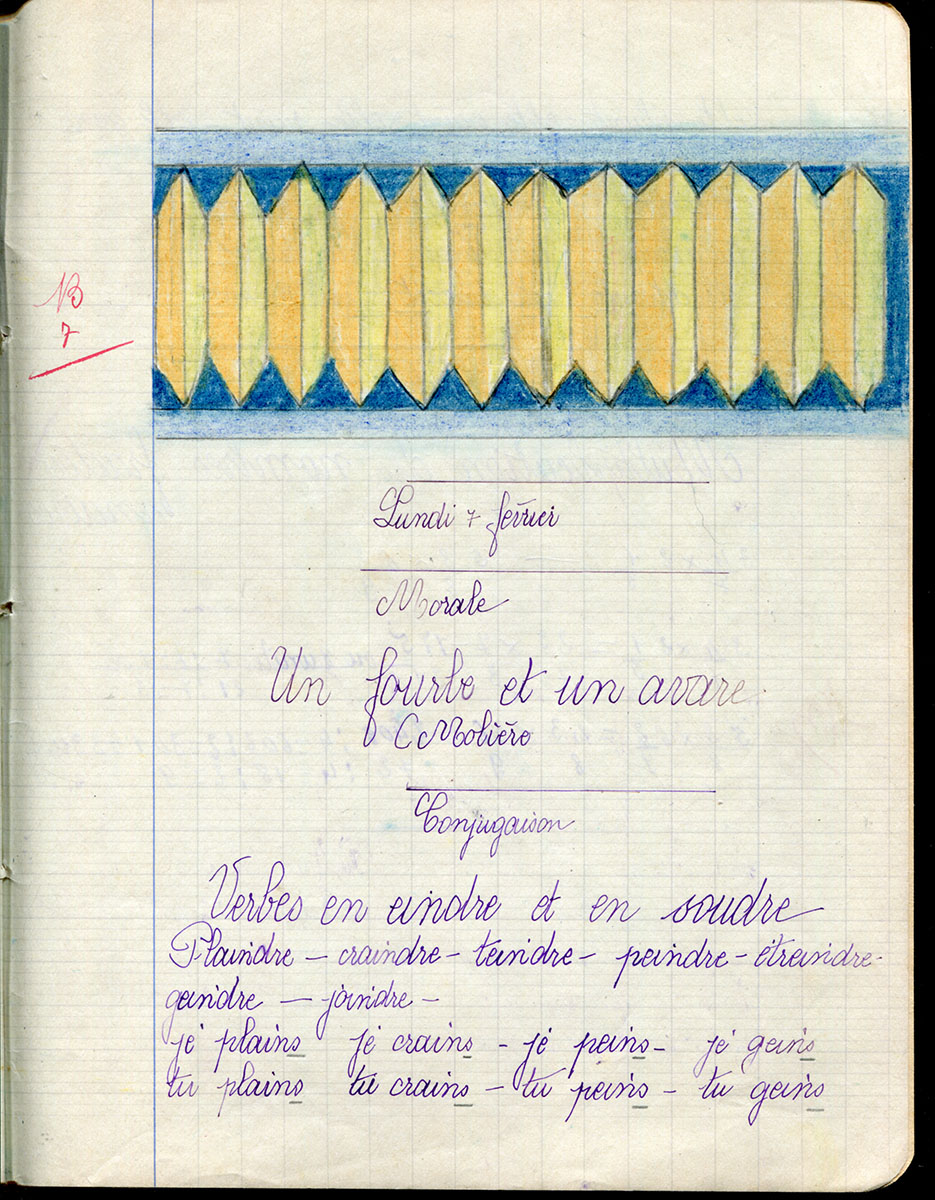 B
7
Lundi 7 février
Morale
Un fourbe et un avare.
Molière
Conjugaison
Verbes en eindre et en soudre
Plaindre - craindre - teindre - peindre - étreindre -
geindre - joindre -
je plains je crains - je peins - je geins
tu plains tu crains - tu peins - tu geins